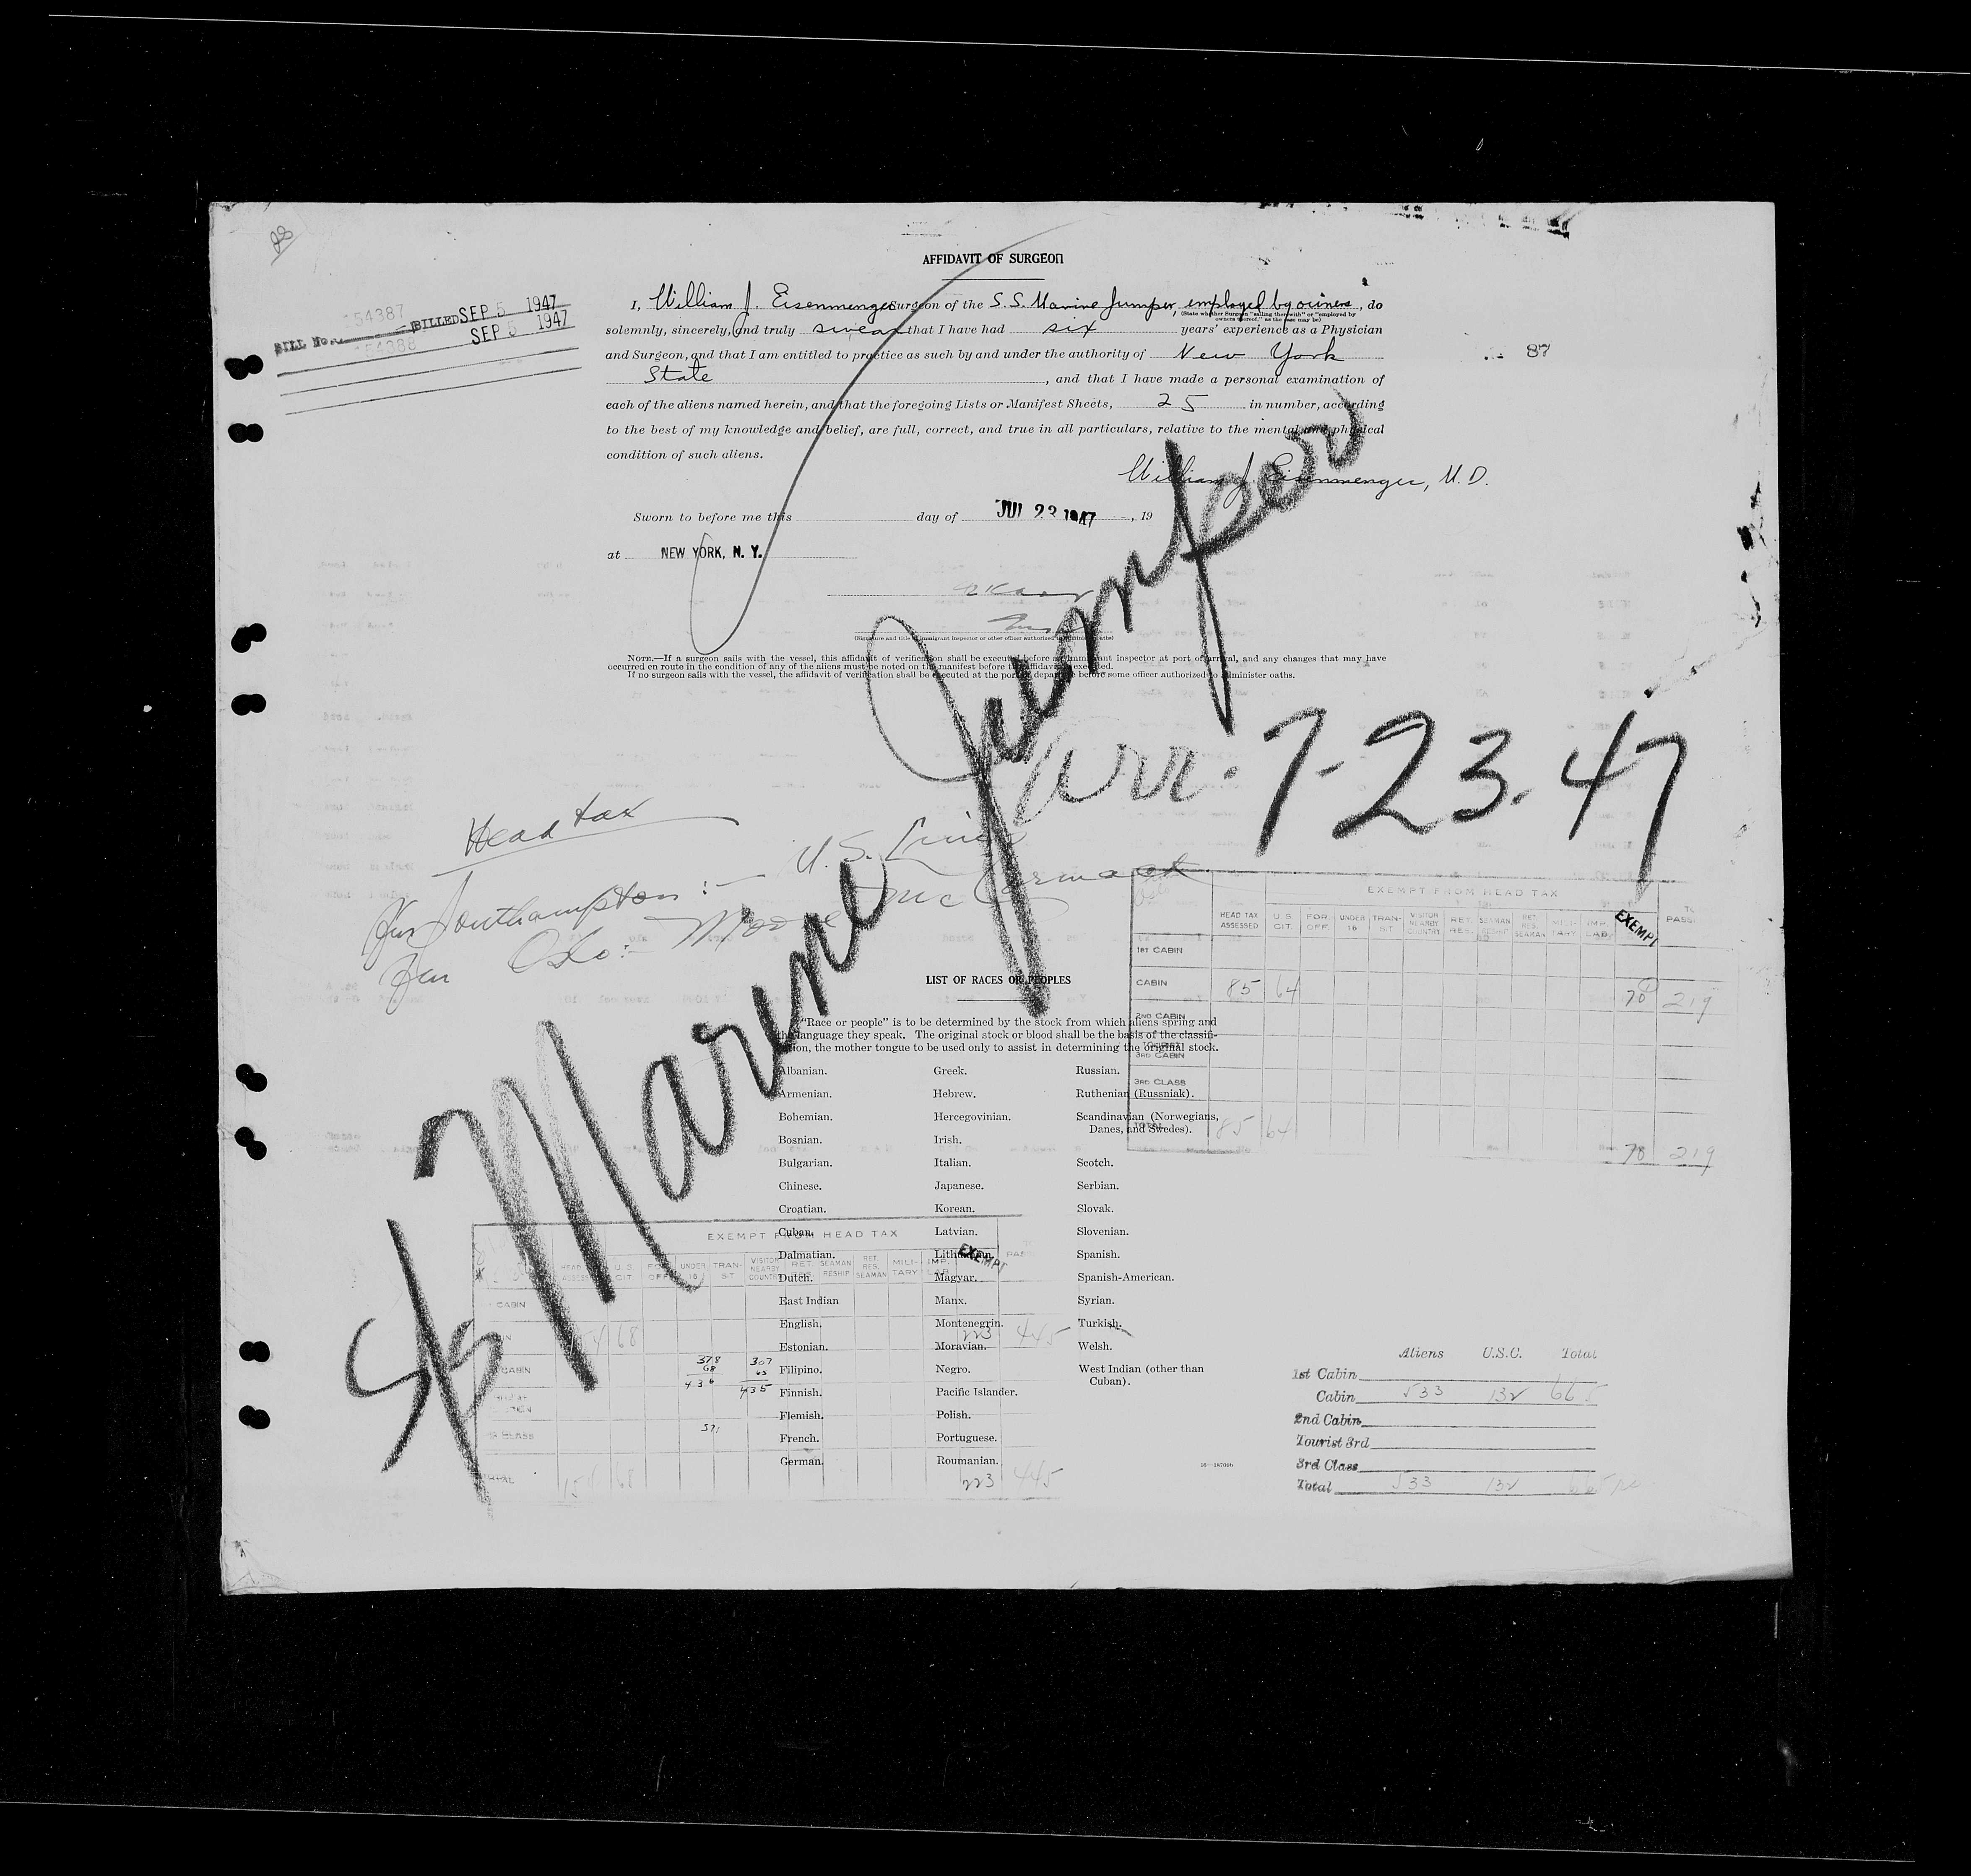 28
AFFIDAVIT OF SURGEON
I, William J. Eisenmenger Surgeon of the S.S. Marine Jumper, employed by owners, do
(State whether Surgeon "sailing therewith" or "employed by
owners thereof," as the case may be)
solemnly, sincerely, and truly swear that I have had six years' experience as a Physician
and Surgeon, and that I am entitled to practice as such by and under the authority of New York
State, and that I have made a personal examination of
each of the aliens named herein, and that the foregoing Lists or Manifest Sheets, 25 in number, according
to the best of my knowledge and belief, are full, correct, and true in all particulars, relative to the mental and physical
condition of such aliens.
William J. Eisenmenger, M.D.
Sworn to before me this day of JUL 23 1947, 19
at NEW YORK, N. Y.
(Signature and title of immigrant inspector or other officer authorized to administer oaths)
NOTE.—If a surgeon sails with the vessel, this affidavit of verification shall be executed before an immigrant inspector at port of arrival, and any changes that may have
occurred en route in the condition of any of the aliens must be noted on the manifest before the affidavit is executed.
If no surgeon sails with the vessel, the affidavit of verification shall be executed at the port of departure before some officer authorized to administer oaths.
BILL No. 154387 BILLED SEP 5 1947
154388 SEP 5 1947
87
S/S Marine Jumper
arr. 7-23-47
Head tax
Southampton:— U.S. Lines
Oslo:— Moore McCormack
EXEMPT FROM HEAD TAX
HEAD TAX ASSESSED
U.S. CIT.
FOR. OFF.
UNDER 16
TRANSIT
VISITOR NEARBY COUNTRY
RET. RES.
SEAMAN RESHIP
RET. RES. SEAMAN
MILITARY
IMP. LAB.
EXEMPT
1ST CABIN
CABIN 85 64 70 219
2ND CABIN
3RD CABIN
3RD CLASS
TOTAL 85 64 70 219
LIST OF RACES OR PEOPLES
"Race or people" is to be determined by the stock from which aliens spring and
the language they speak. The original stock or blood shall be the basis of the classifi-
cation, the mother tongue to be used only to assist in determining the original stock.
Albanian.
Armenian.
Bohemian.
Bosnian.
Bulgarian.
Chinese.
Croatian.
Cuban.
Dalmatian.
Dutch.
East Indian
English.
Estonian.
Filipino.
Finnish.
Flemish.
French.
German.
Greek.
Hebrew.
Hercegovinian.
Irish.
Italian.
Japanese.
Korean.
Latvian.
Lithuanian.
Magyar.
Manx.
Montenegrin.
Moravian.
Negro.
Pacific Islander.
Polish.
Portuguese.
Roumanian.
Russian.
Ruthenian (Russniak).
Scandinavian (Norwegians,
Danes, and Swedes).
Scotch.
Serbian.
Slovak.
Slovenian.
Spanish.
Spanish-American.
Syrian.
Turkish.
Welsh.
West Indian (other than
Cuban).
16—18700b
EXEMPT FROM HEAD TAX
HEAD ASSESSED
U.S. CIT
FOR OFF
UNDER 16
TRANSIT
VISITOR NEARBY COUNTRY
RET. RES.
SEAMAN RESHIP
RET. RES. SEAMAN
MILITARY
IMP. LAB.
EXEMPT
CABIN
154 68 223 445
CABIN
378 307
436 435
371
CLASS
TOTAL 154 68 223 445
Aliens U.S.C. Total
1st Cabin
Cabin 533 132 665
2nd Cabin
Tourist 3rd
3rd Class
Total 533 132 665